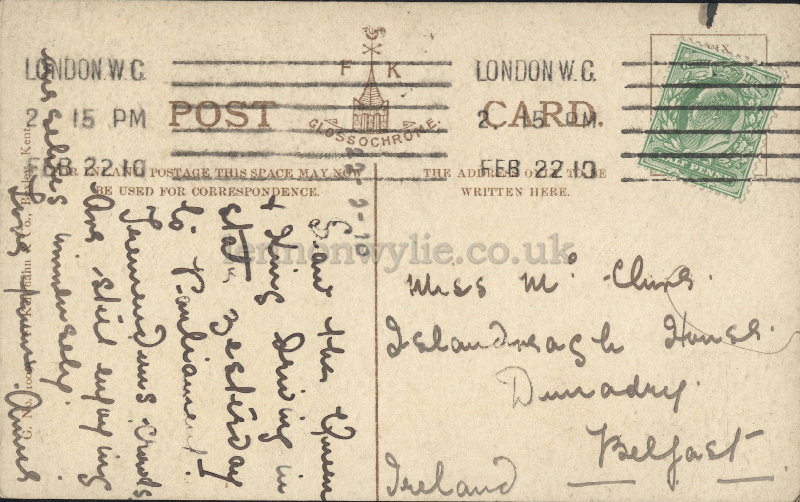 LONDON W.C.
2. 15 PM
FEB 22 10
LONDON W.C.
2. 15 PM
FEB 22 10
F K
GLOSSOCHROME.
POST CARD.
FOR INLAND POSTAGE THIS SPACE MAY NOW
BE USED FOR CORRESPONDENCE.
THE ADDRESS ONLY TO BE
WRITTEN HERE.
HALF PENNY
22-2-10
Saw the Queen
& King Driving in
state yesterday
to Parliament!
Tremendous crowds
Are still enjoying
ourselves immensely.
Love from Annie
Miss Mc Clure.
Islandreagh House.
Dunadry.
Belfast
Ireland
lennonwylie.co.uk
& Co., Bexley, Kent.
G. No.